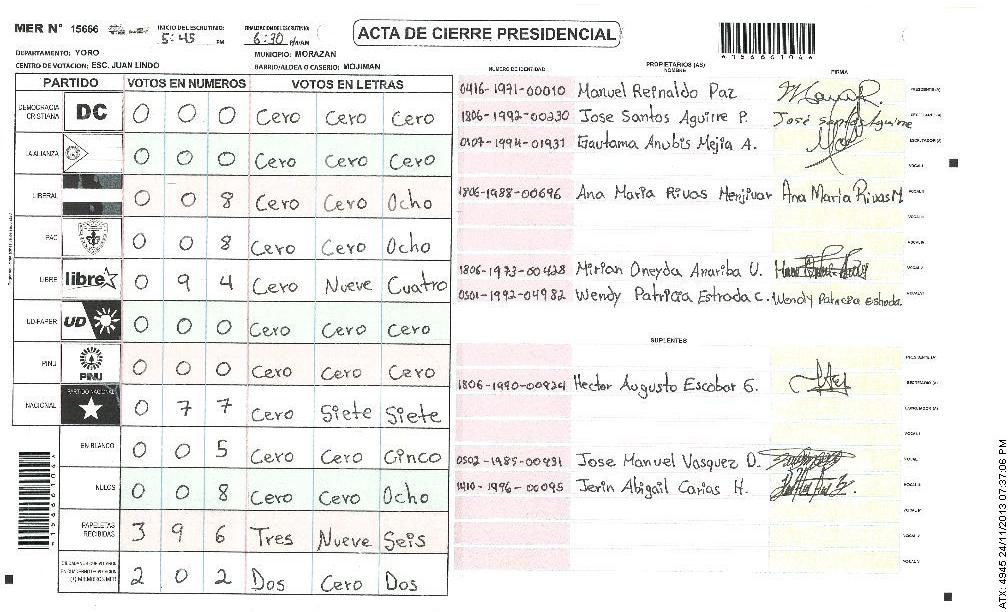 MER N° 15666 INICIO DEL ESCRUTINIO: 5:45 PM FINALIZACION DEL ESCRUTINIO: 6:30 P/AM
ACTA DE CIERRE PRESIDENCIAL
DEPARTAMENTO: YORO MUNICIPIO: MORAZAN
CENTRO DE VOTACION: ESC. JUAN LINDO BARRIO/ALDEA O CASERIO: MOJIMAN
PARTIDO VOTOS EN NUMEROS VOTOS EN LETRAS
DEMOCRACIA CRISTIANA DC 0 0 0 Cero Cero Cero
LA ALIANZA 0 0 0 Cero Cero Cero
LIBERAL 0 0 8 Cero Cero Ocho
PAC 0 0 8 Cero Cero Ocho
LIBRE libre 0 9 4 Cero Nueve Cuatro
UD-FAPER UD 0 0 0 Cero Cero Cero
PINU PINU 0 0 0 Cero Cero Cero
NACIONAL PARTIDO NACIONAL 0 7 7 Cero Siete Siete
EN BLANCO 0 0 5 Cero Cero Cinco
NULOS 0 0 8 Cero Cero Ocho
PAPELETAS RECIBIDAS 3 9 6 Tres Nueve Seis
2 0 2 Dos Cero Dos
NUMERO DE IDENTIDAD PROPIETARIOS (AS) NOMBRE FIRMA
0416-1971-00010 Manuel Reinaldo Paz PRESIDENTE (A)
1806-1992-00230 Jose Santos Aguirre P. José Santos Aguirre SECRETARIO (A)
0107-1994-01931 Gautama Anubis Mejia A. ESCRUTADOR (A)
VOCAL I
1806-1988-00696 Ana Maria Rivas Menjivar Ana Maria Rivas M VOCAL II
VOCAL III
VOCAL IV
1806-1973-00428 Mirian Oneyda Anariba U. VOCAL V
0501-1992-04982 Wendy Patricia Estrada C. Wendy Patricia Estrada. VOCAL VI
SUPLENTES
PRESIDENTE (A)
1806-1990-00924 Hector Augusto Escobar G. SECRETARIO (A)
ESCRUTADOR (A)
VOCAL I
0502-1985-00931 Jose Manuel Vasquez D. VOCAL II
1410-1996-00095 Jerin Abigail Carias H. VOCAL III
VOCAL IV
VOCAL V
VOCAL VI
ATX: 4945 24/11/2013 07:37:06 PM